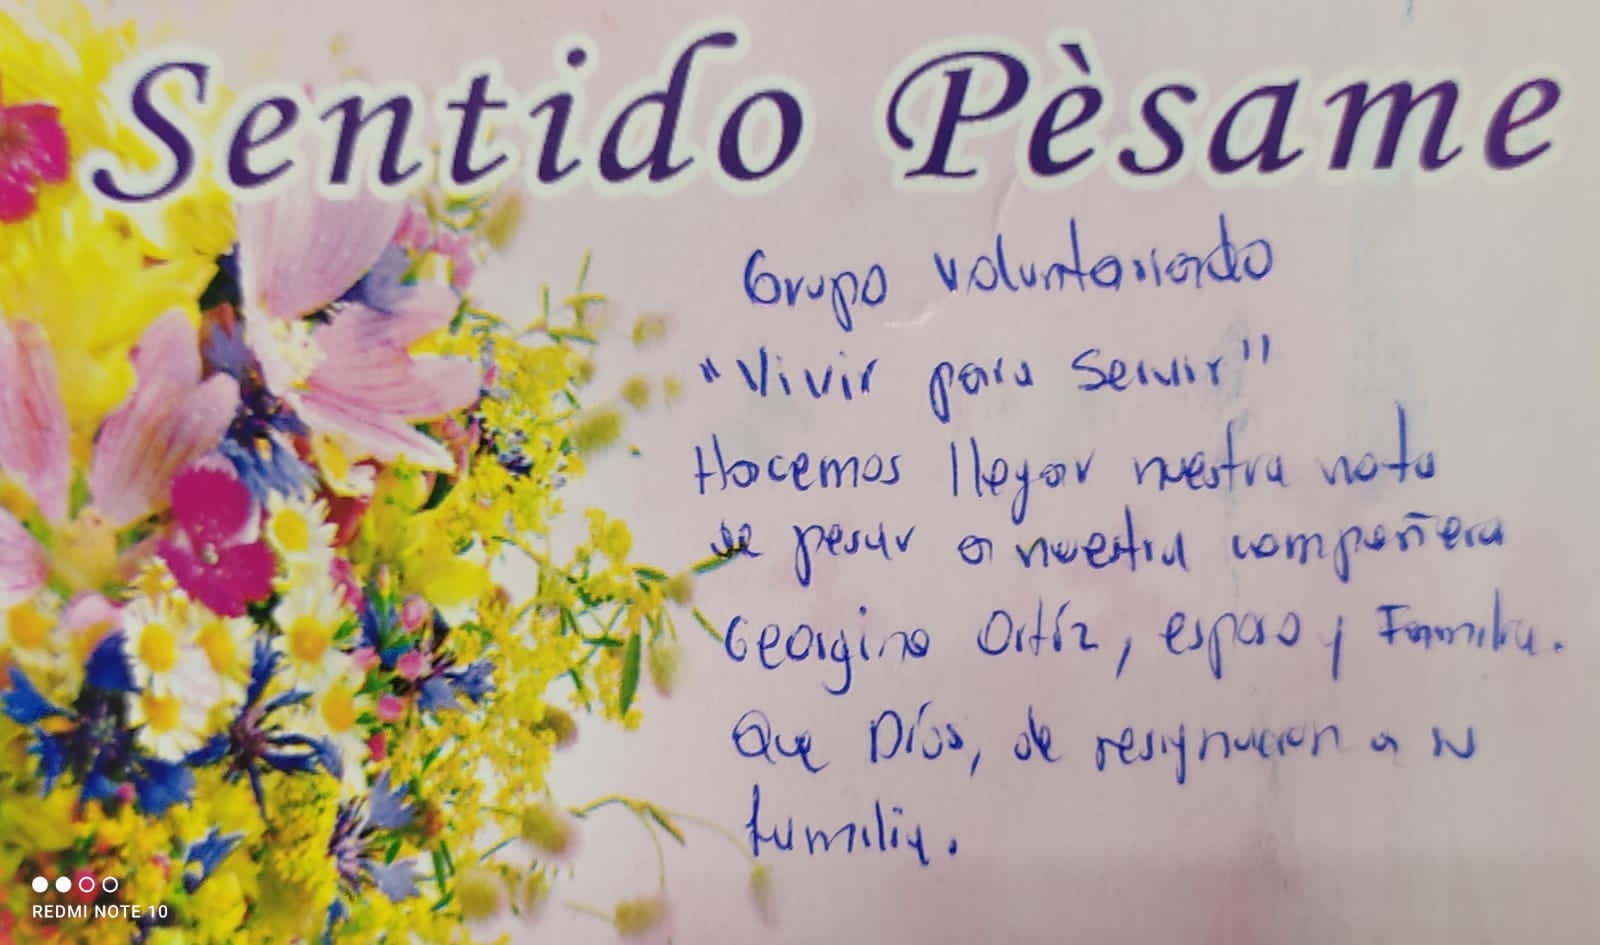 Sentido Pèsame
Grupo voluntariado
"Vivir para Servir"
Hacemos llegar nuestra nota
de pesar a nuestra compañera
Georgina Ortíz, esposo y Familia.
Que Díos, de resignacion a su
familia.
REDMI NOTE 10